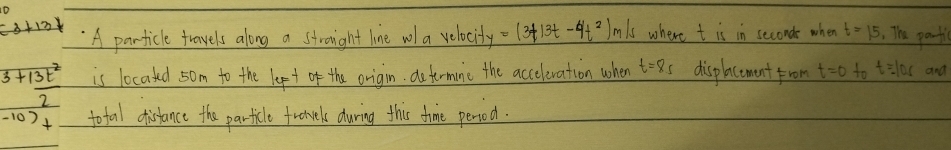 10
-3+13t
· A particle travels along a straight line w/ a velocity = (3+13t-4t²)m/s where t is in seconds when t=1s, The partic
3+13t²
2
is located 50m to the left of the origin. determine the acceleration when t=8s displacement from t=0 to t=10s and
-10)+
total distance the particle travels during this time period.